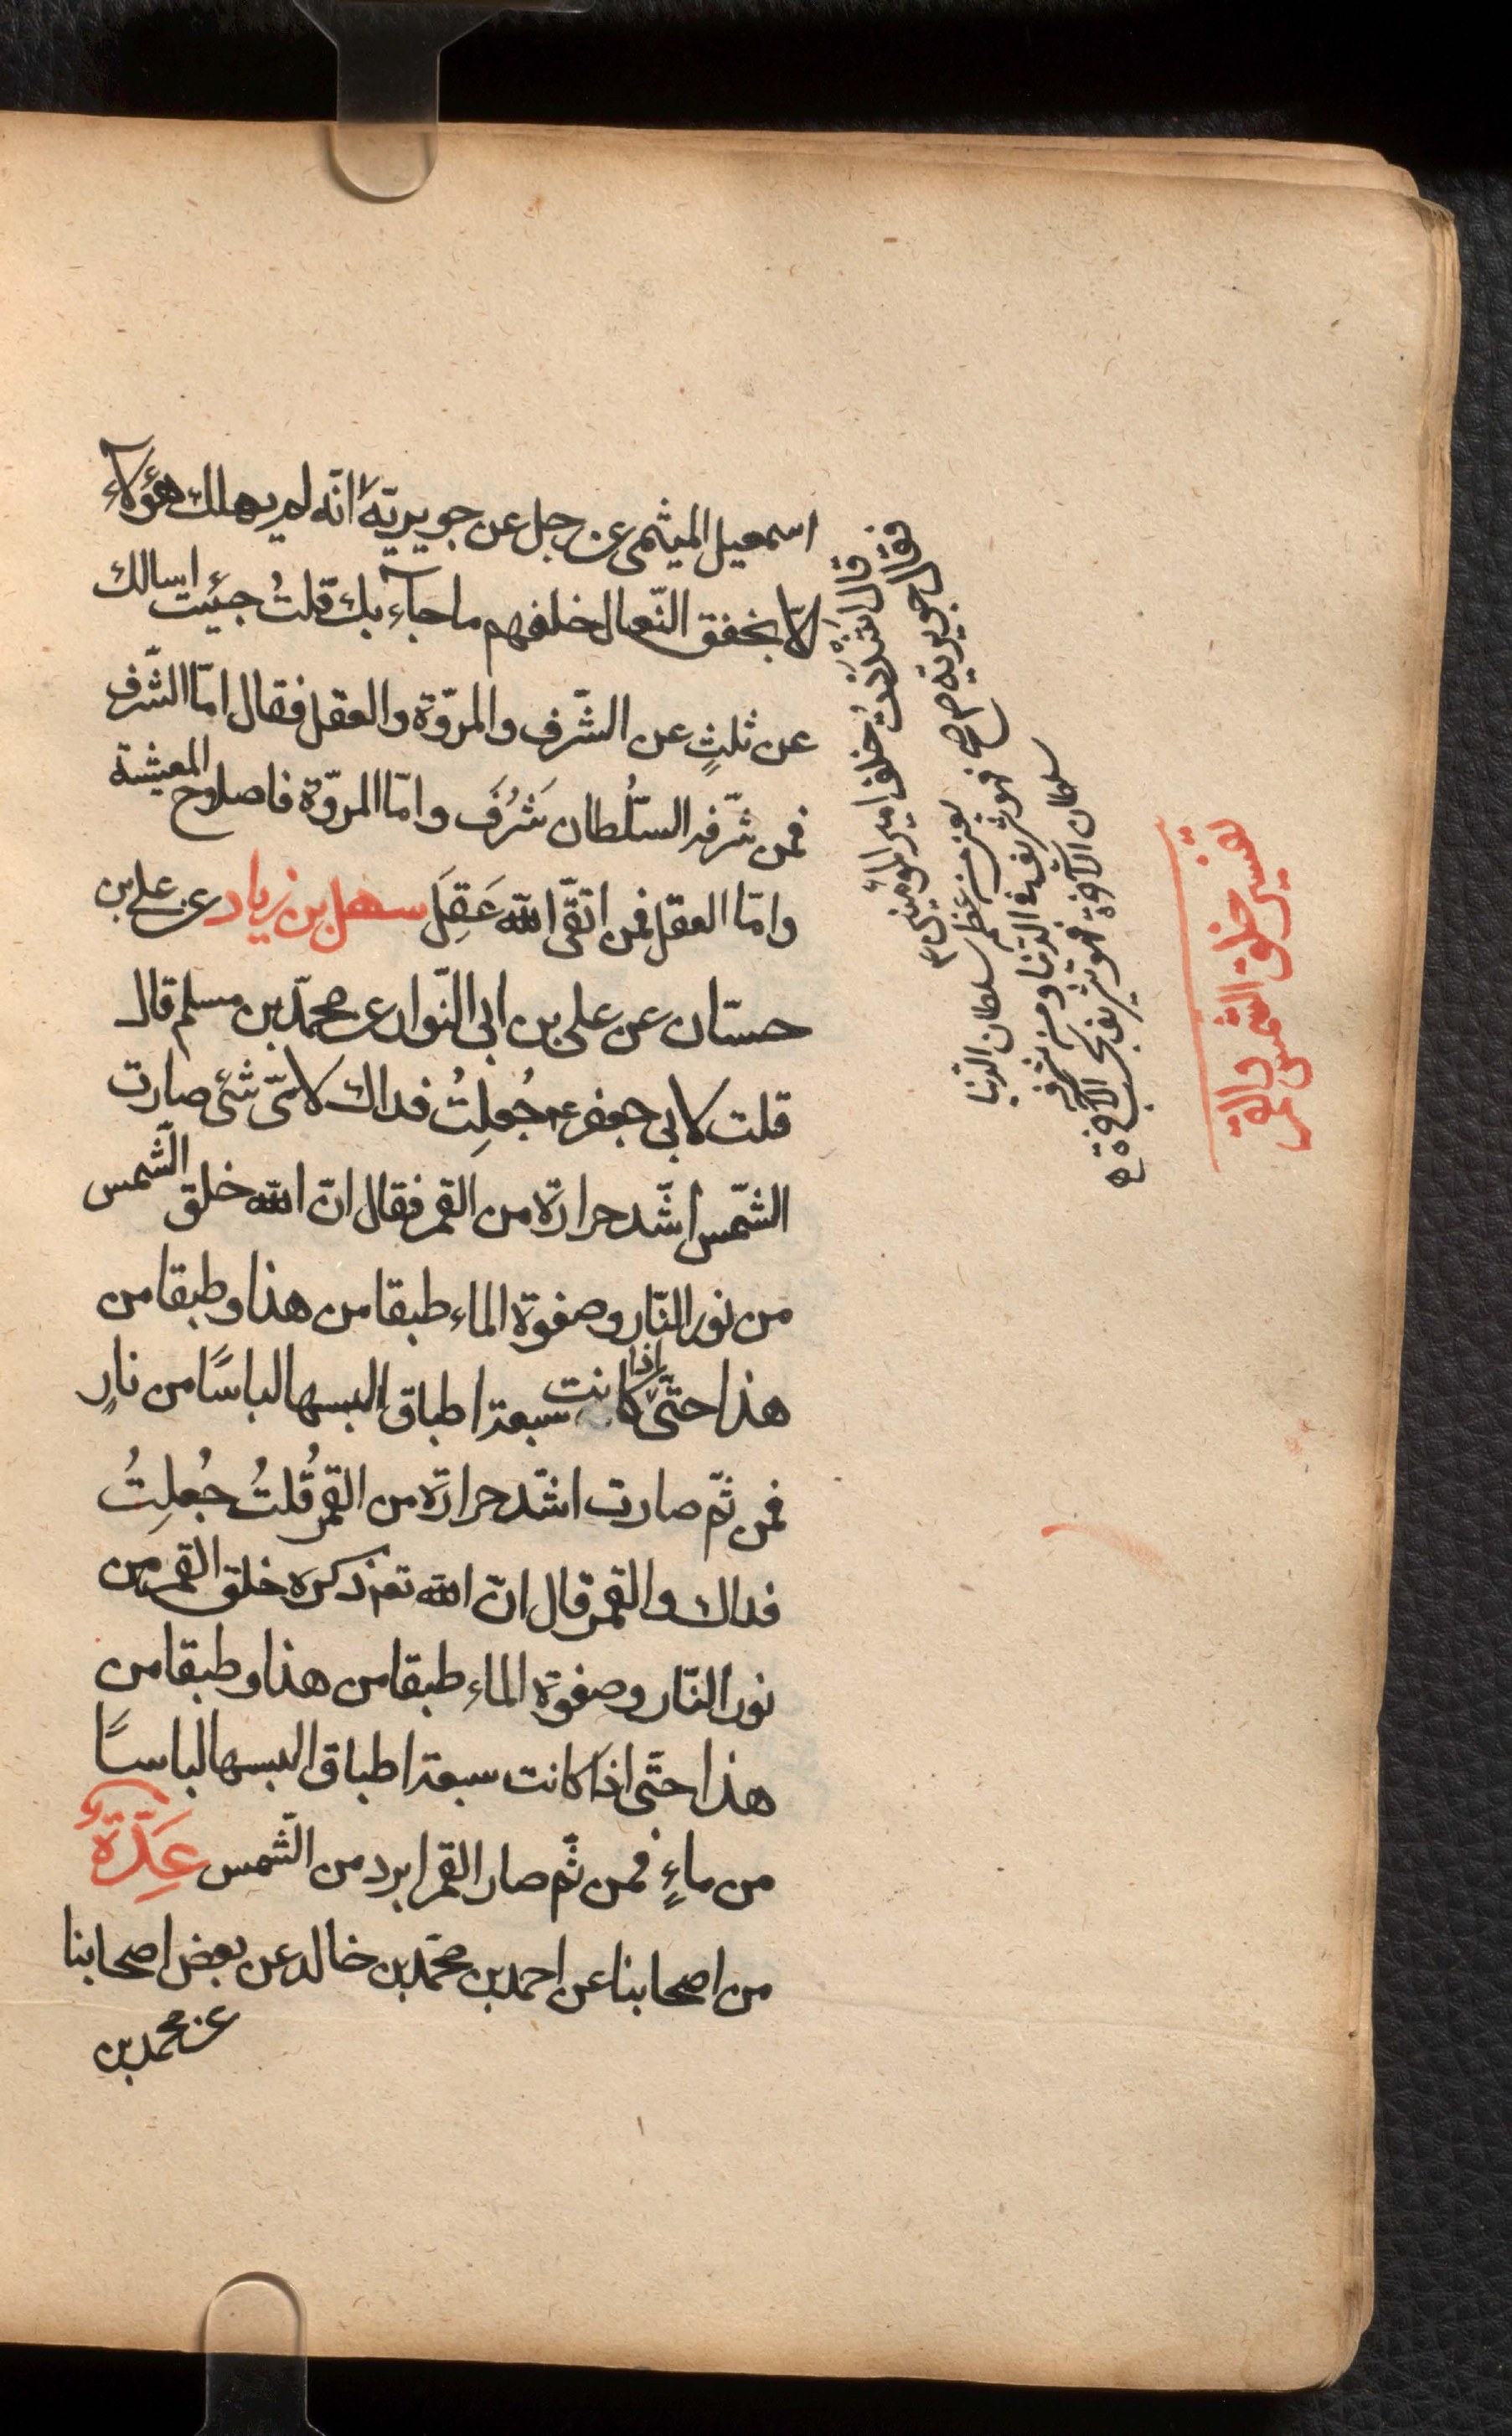 اسمعيل الميثمى عن رجل عن جويرية انّه لم يهلك هؤلاء
الّا بخفق النّعال خلفهم ما جآء بك قلتُ جئيت اسالك
عن ثلثٍ عن الشّرف والمروّة والعقل فقال امّا الشّرف
فمن شرّفه السّلُطان شَرُفَ وامّا المروّة فاصلاح المعيشة
وامّا العقل فمن اتقّى الله عَقِلَ سهل بن زياد عن على بن
حسّان عن على بن ابى النّوار عن محمّد بن مسلم قال
قلت لابى جعفر عم جُعلِتُ فداك لاىّ شئ صارت
الشّمس اشّد حرارة من القمر فقال انّ الله خلق الشّمس
من نور النّار وصفوة الماء طبقا من هذا وطبقا من
هذا حتّى اذا كانت سبعة اطباق البسها لباسًا من نارٍ
فمن ثمّ صارت اشّد حرارة من القمر قُلتُ جُعلِتُ
فداك والقمر قال انّ الله تع ذكره خلق القمر من
نور النّار وصفوة الماء طبقا من هذا وطبقا من
هذا حتّى اذا كانت سبعة اطباق البسها لباسًا
من ماءٍ فمن ثّم صار القمر ابرد من الشّمس عِدّةٌ
من اصحابنا عن احمد بن محمّد بن خالد عن بعض اصحابنا
عن محمد بن
قال اشْتَدَدْتُ خلف امير المؤمنين ع
فقال جويرية صح
يعنى من عظم سلطان الدّنيا
فهو شريف فى الدّنيا ومن شرفه
سلطان الآخرة فهو شريف بحسب الآخرة
تفسير خلق الشّمس والقمر